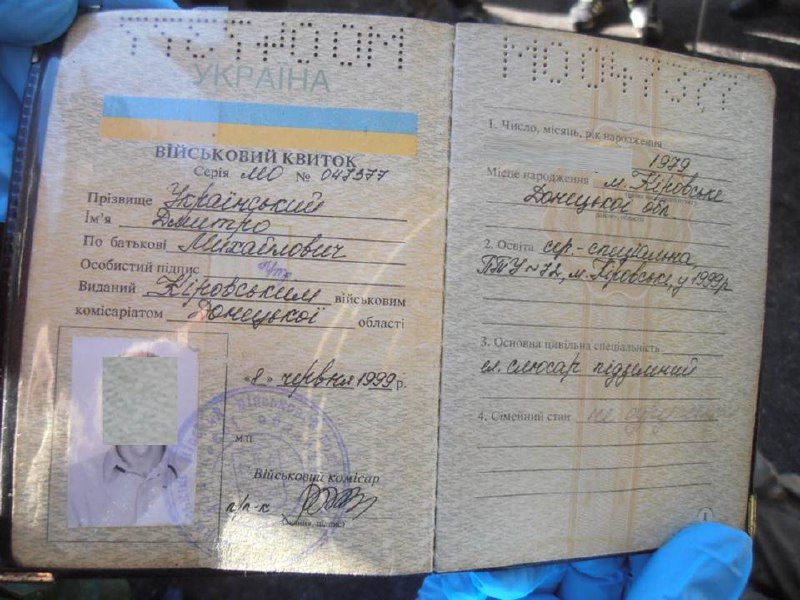 УКРАЇНА
ВІЙСЬКОВИЙ КВИТОК
Серія МО № 047377
Прізвище Український
Ім'я Дмитро
По батькові Михайлович
Особистий підпис
Виданий Кіровським військовим
комісаріатом Донецької області
«8» червня 1999 р.
М.П.
Військовий комісар
п/п-к
(звання, підпис)
МО 047377
1. Число, місяць, рік народження
1979
Місце народження м. Кіровське
Донецької обл
2. Освіта сер-спеціальна
ПТУ-72, м. Кіровське, у 1999р
3. Основна цивільна спеціальність
ел. слюсар підземний
4. Сімейний стан не одружений
1